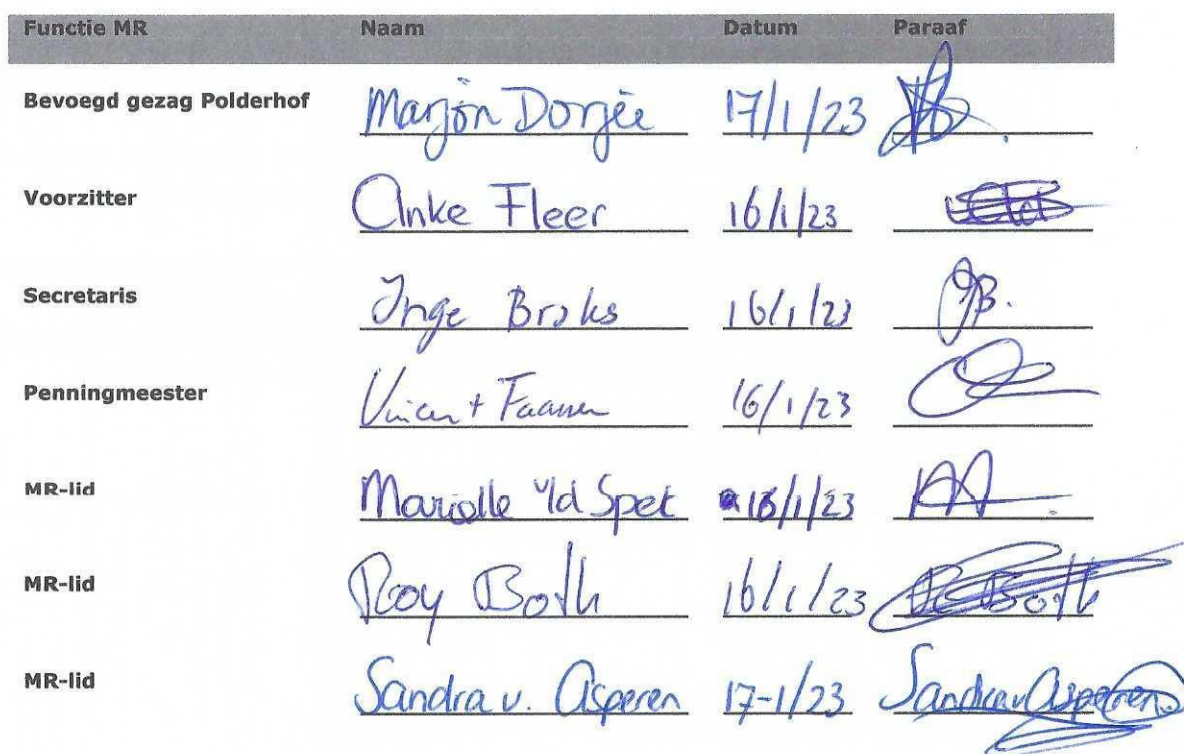 Functie MR Naam Datum Paraaf
Bevoegd gezag Polderhof Marjon Dorjée 17/1/23
Voorzitter Anke Fleer 16/1/23
Secretaris Inge Broks 16/1/23 JB.
Penningmeester Vincent Faassen 16/1/23
MR-lid Mariolle v/d Spek 16/1/23
MR-lid Roy Both 16/1/23 R Both
MR-lid Sandra v. Asperen 17-1/23 Sandra v Asperen